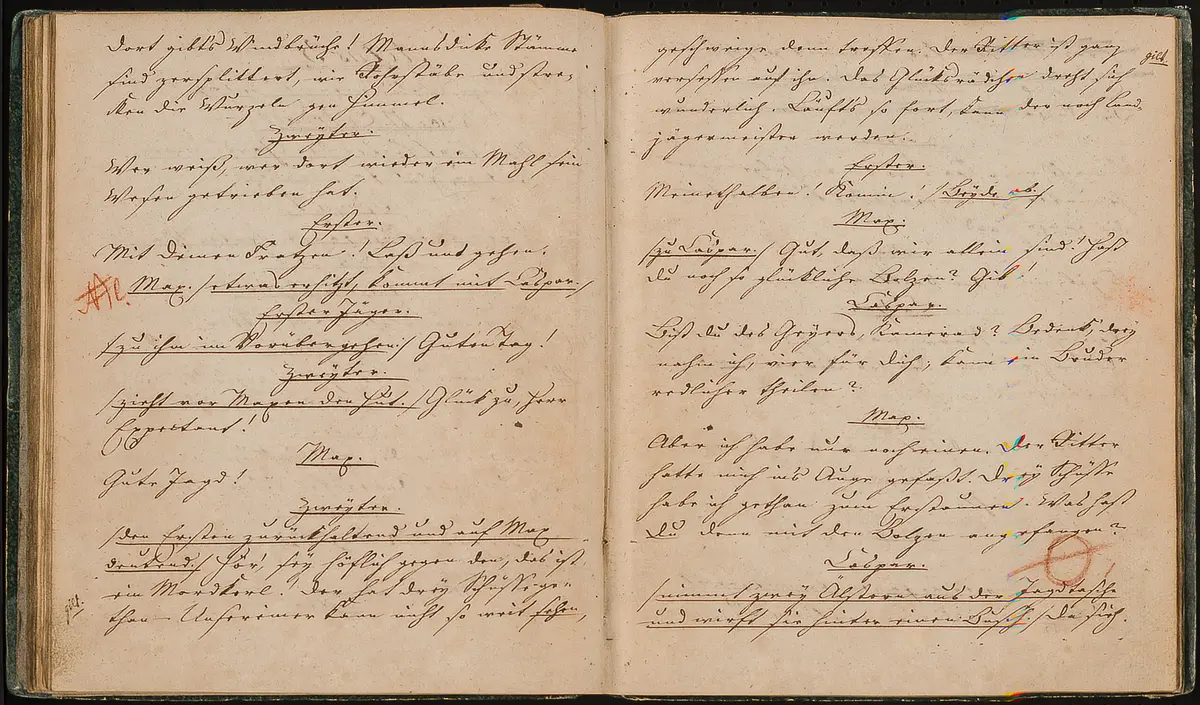 Dort gibts Windbrüche! Mannsdicke Stämme
sind zersplittert, wie Rohrstäbe und stre-
cken die Wurzeln gen Himmel.
Zweyter.
Wer weiß, wer dort wieder ein Mahl sein
Wesen getrieben hat.
Erster.
Mit Deinen Fratzen! Laß uns gehen.
Max. /etwas erhitzt, kommt mit Caspar./
Erster Jäger.
/zu ihm im Vorübergehen:/ Guten Tag!
Zweyter.
/zieht vor Maxen den Hut./ Glück zu, Herr
Expectant!
Max.
Gute Jagd!
Zweyter.
/den Ersten zurückhaltend und auf Max
deutend:/ Hör', sey höflich gegen den, das ist
ein Mordkerl! Der hat drey Schüsse ge-
than – Unsereiner kann nicht so weit sehen,
gilt.
geschweige denn treffen. Der Ritter ist ganz
gilt.
versessen auf ihn. Das Glücksrädchen dreht sich
wunderlich. Läufts so fort, kann der noch Land-
jägermeister werden.
Erster.
Meinethalben! Komm! /Beyde ab./
Max.
/zu Caspar:/ Gut, daß wir allein sind! Hast
du noch so glückliche Bolzen? Gib!
Caspar.
Bist du des Geyers, Kamerad? Bedenk, drey
nahm ich, vier für dich; kann ein Bruder
redlicher theilen?
Max.
Aber ich habe nur noch einen. Der Ritter
hatte mich ins Auge gefaßt. Drey Schüsse
habe ich gethan zum Erstaunen. Was hast
du denn mit den Bolzen angefangen?
Caspar.
/nimmt zwey Älstern aus der Jagdtasche
und wirft sie hinter einen Busch:/ Da sieh.